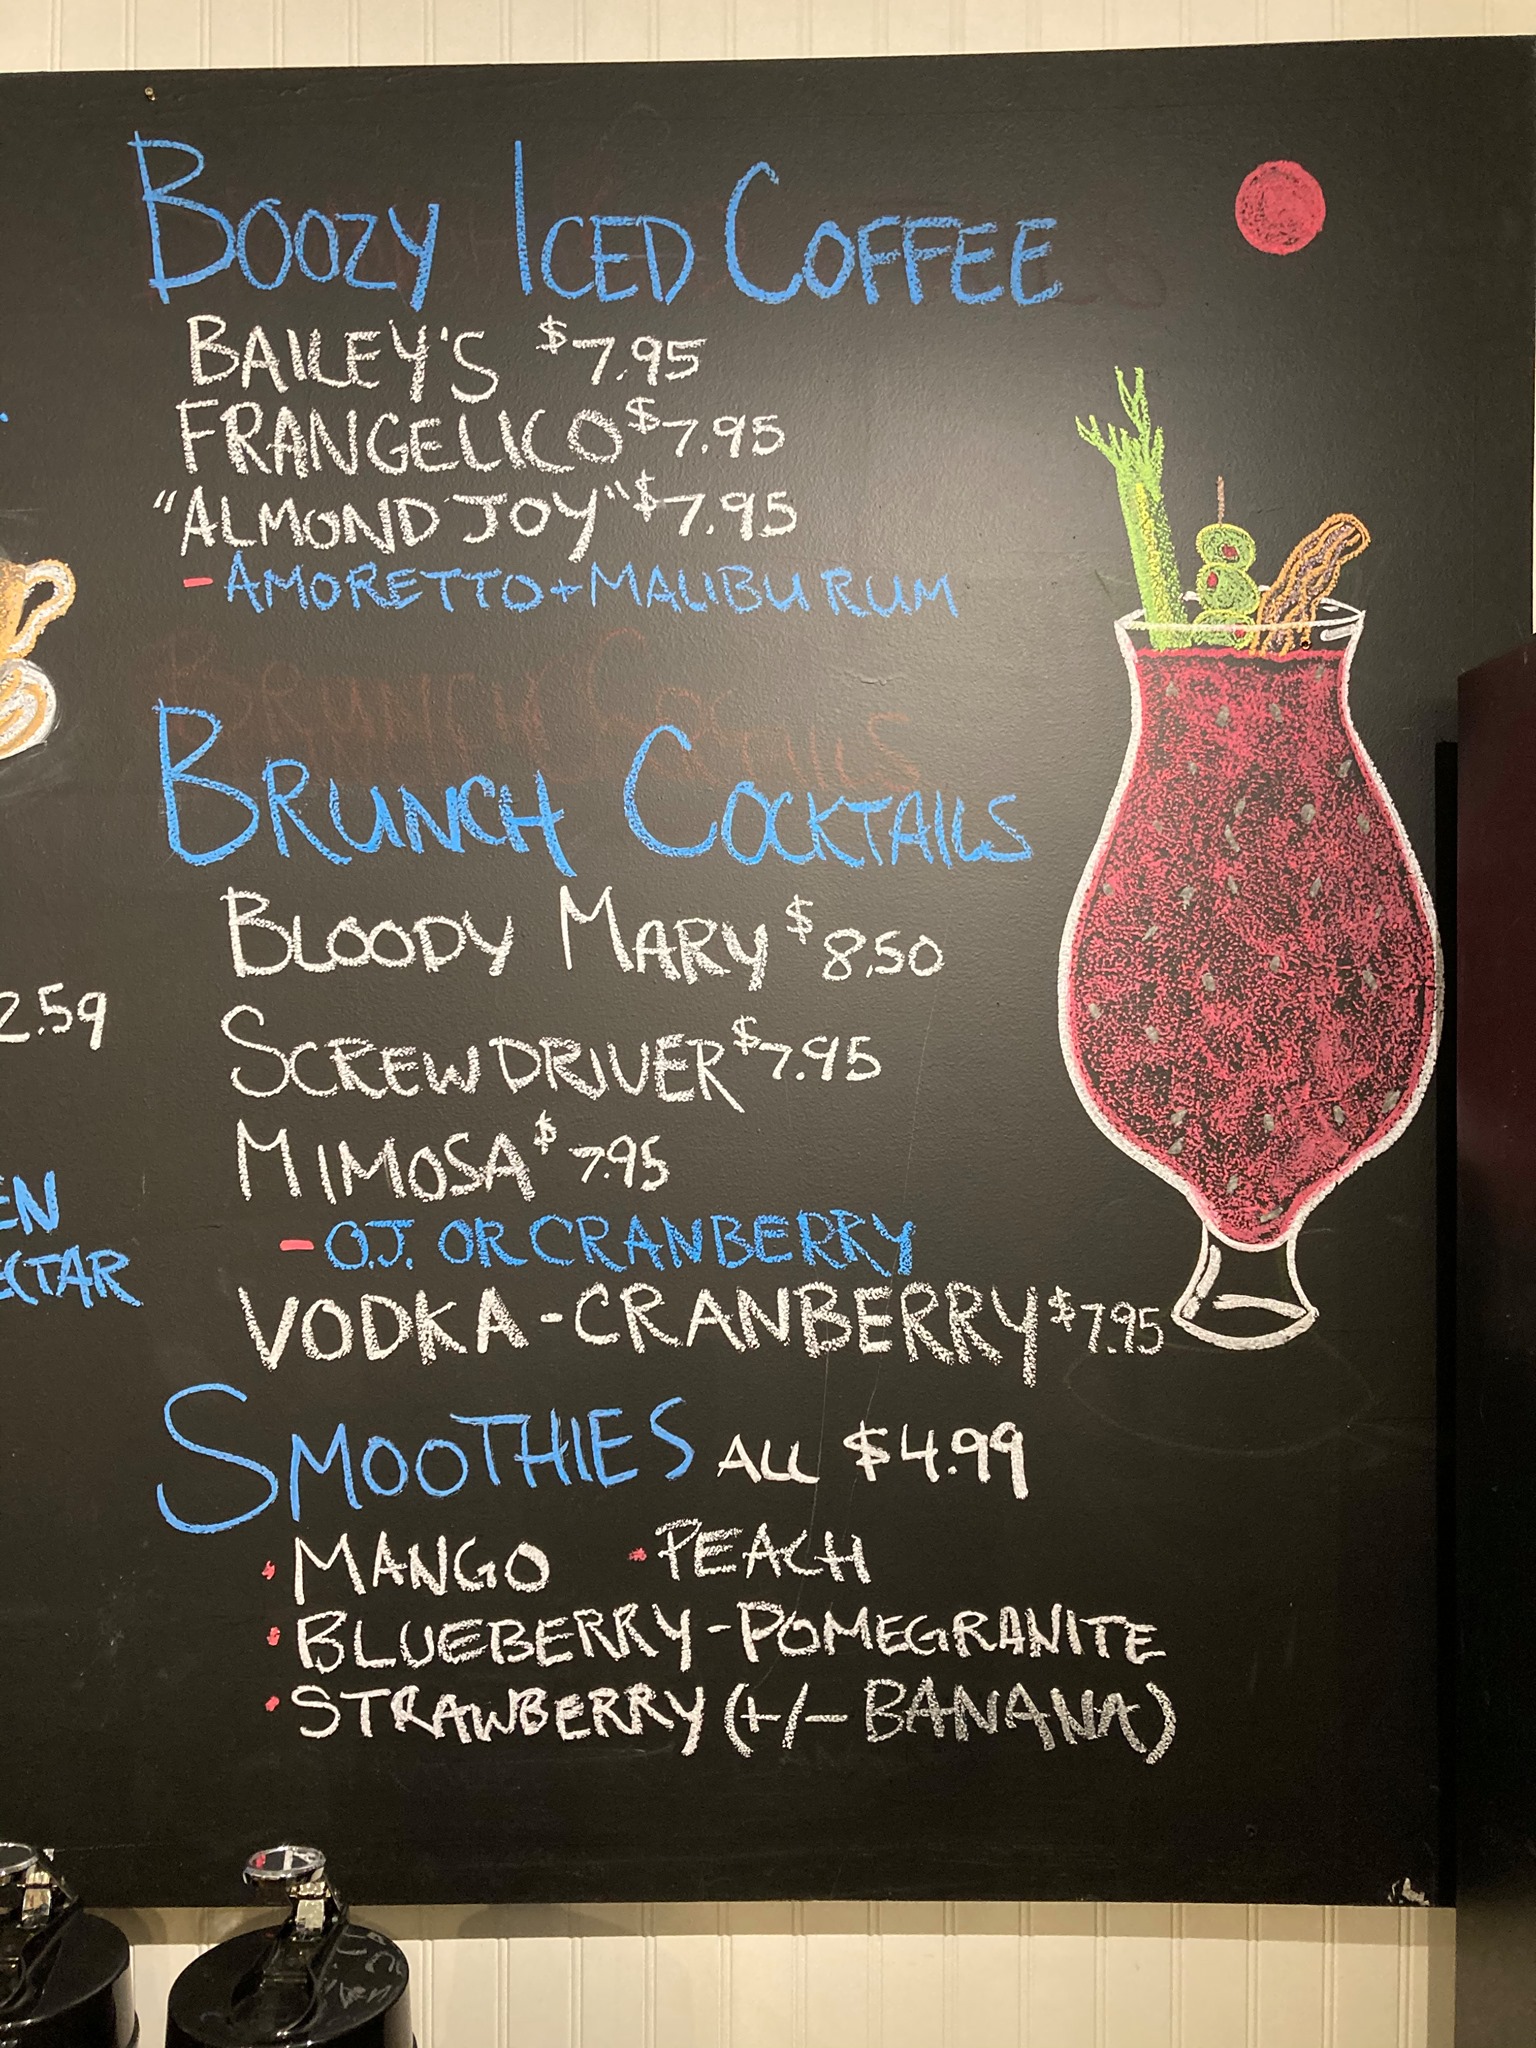 BOOZY ICED COFFEE
BAILEY'S $7.95
FRANGELICO $7.95
"ALMOND JOY" $7.95
- AMORETTO + MALIBU RUM
BRUNCH COCKTAILS
BRUNCH COCKTAILS
BLOODY MARY $8.50
SCREWDRIVER $7.95
MIMOSA $7.95
- O.J. OR CRANBERRY
VODKA-CRANBERRY $7.95
SMOOTHIES ALL $4.99
• MANGO • PEACH
• BLUEBERRY-POMEGRANITE
• STRAWBERRY (+/- BANANA)
2.59
EN
ECTAR